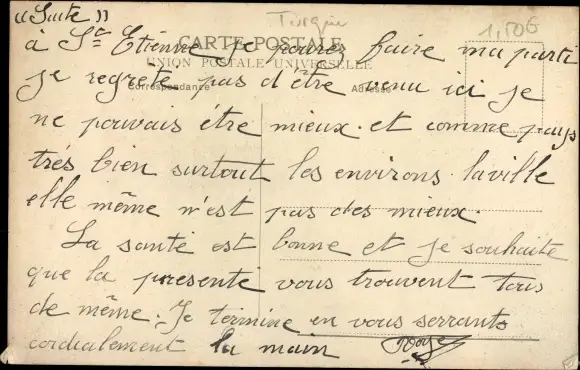 "Suite"
Turquie
1,50€
à St Etienne je pourrez faire ma parti
CARTE POSTALE
UNION POSTALE UNIVERSELLE
je regrete pas d'être venu ici je
Correspondance
Adresse
ne pouvais être mieux. et comme pays
trés bien surtout les environs. laville
elle même n'est pas des mieux.
La santé est bonne et je souhaite
que la presente vous trouvent tous
de même. Je termine en vous serrants
cordialement la main